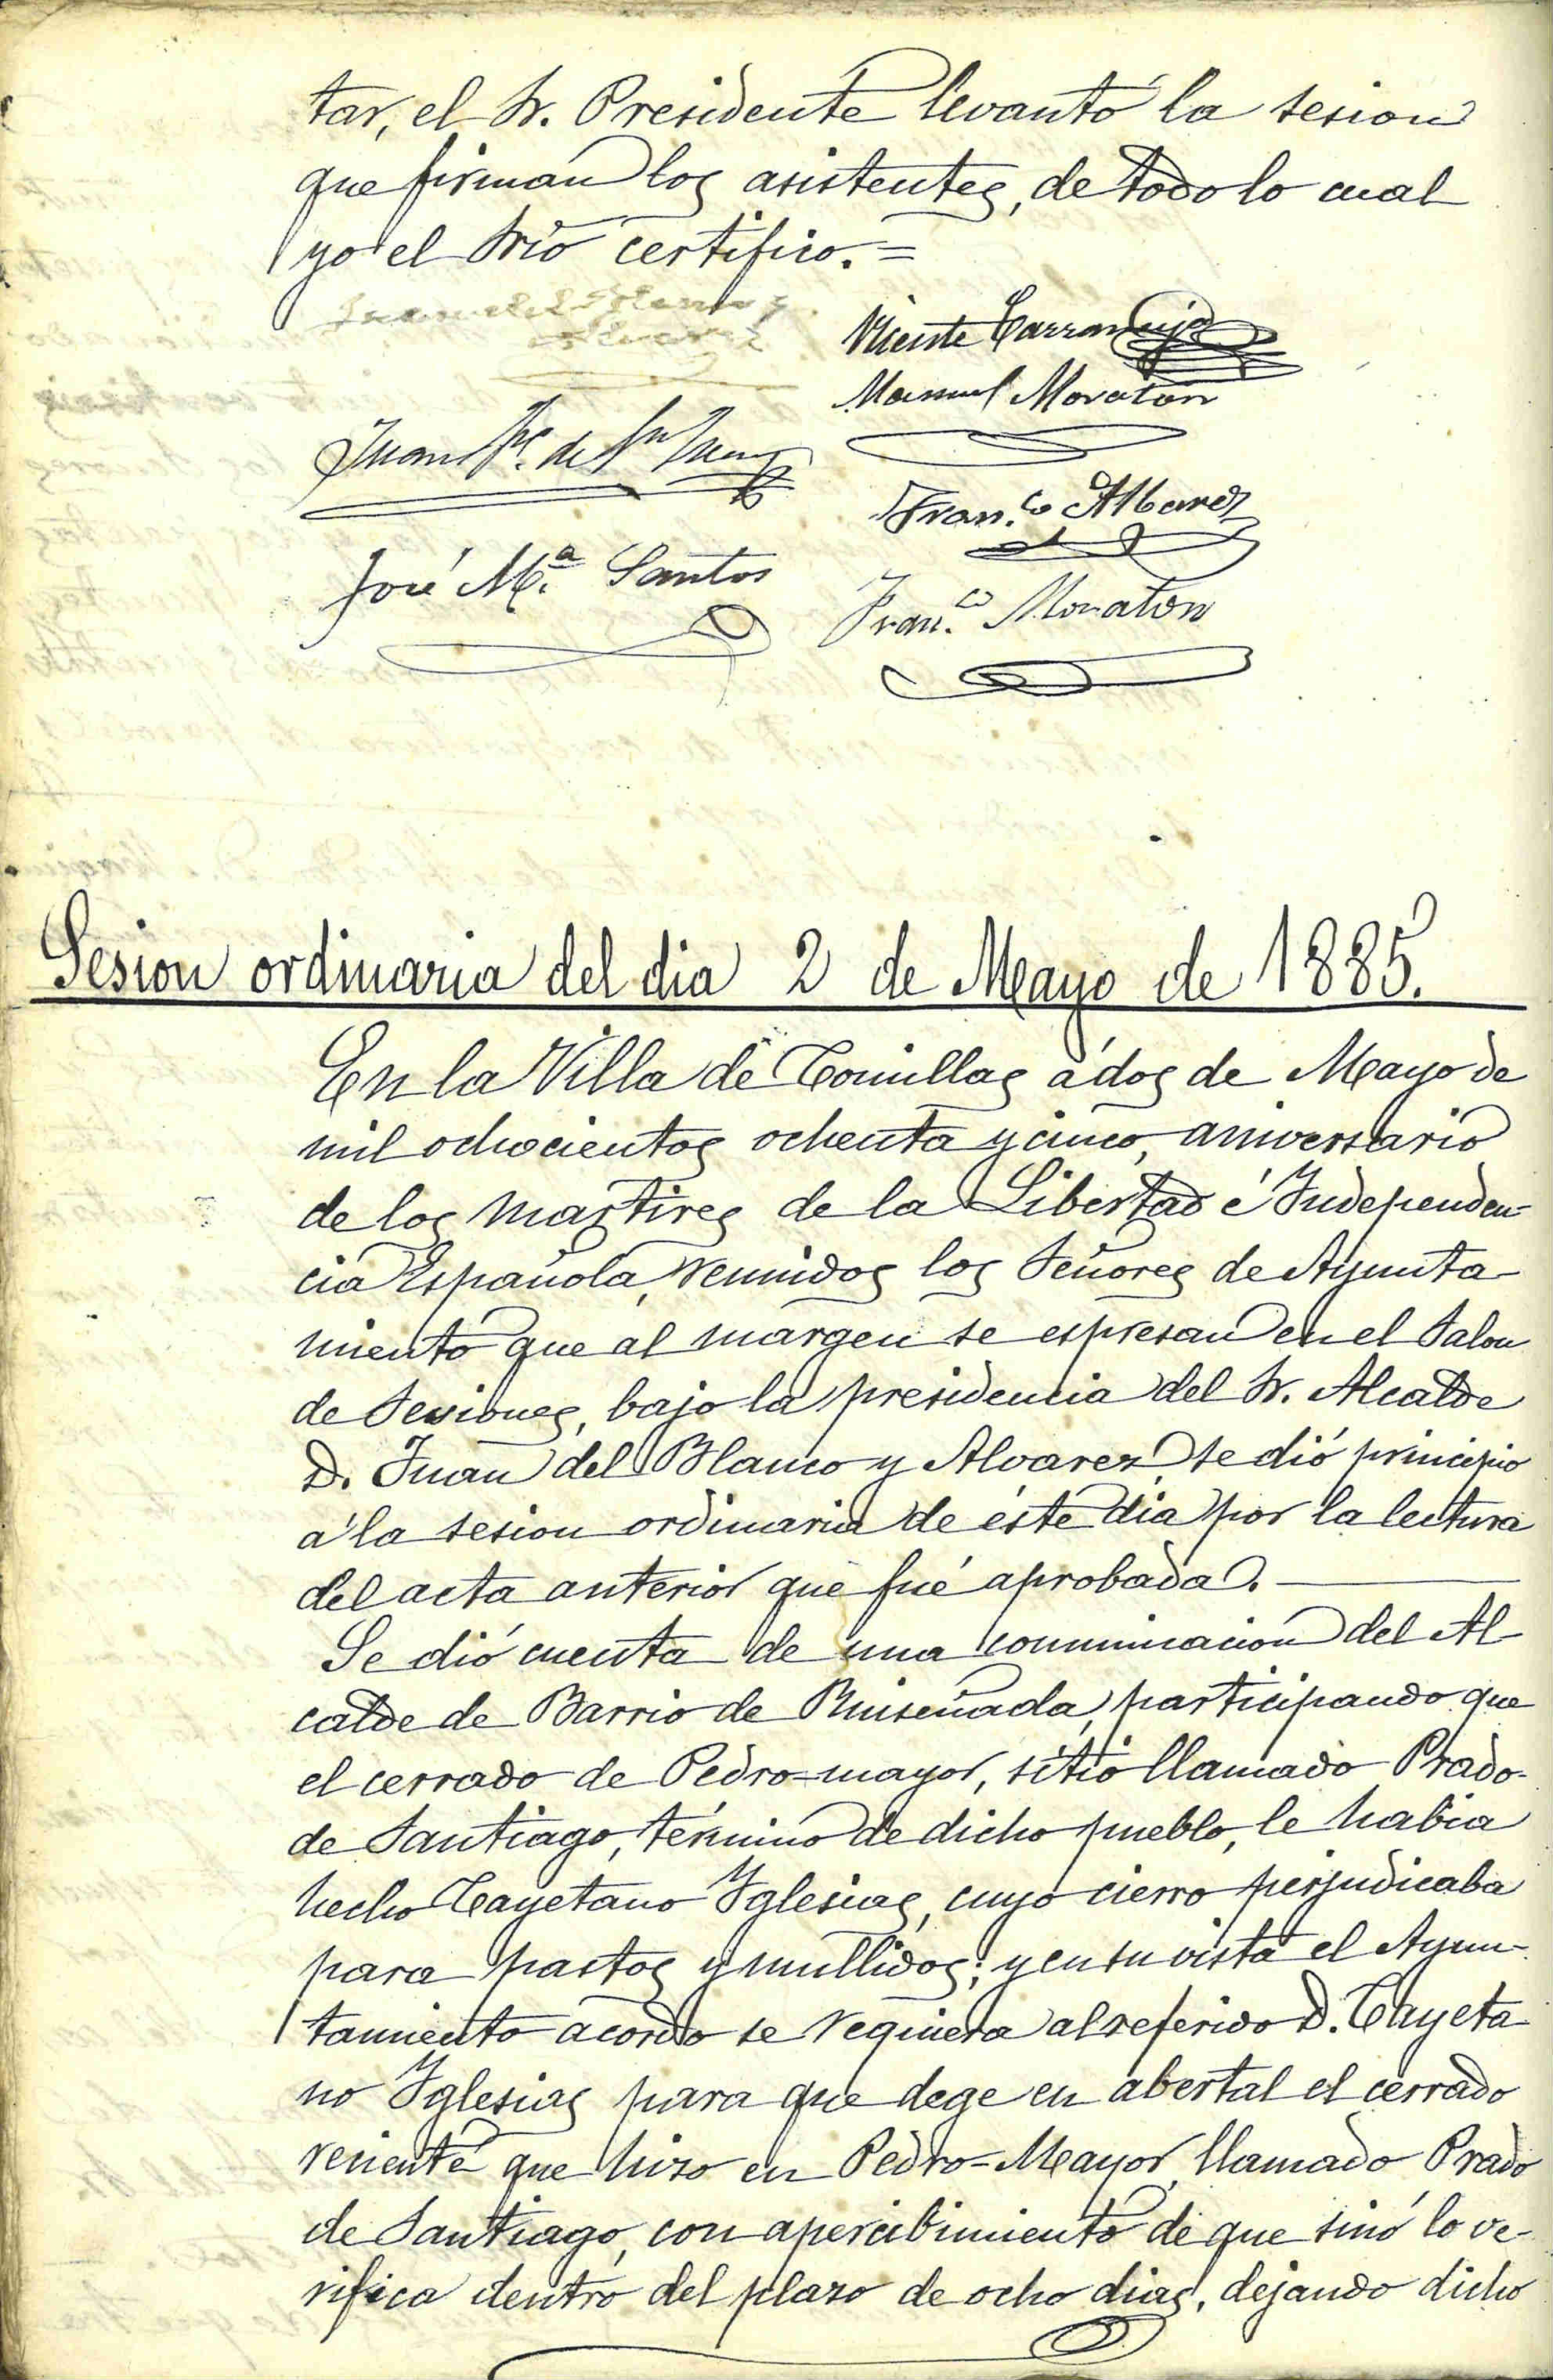 tar, el Sr. Presidente levantó la sesion
que firman los asistentes, de todo lo cual
yo el Srio certifico. =
Vicente Carranceja
Manuel Moraton
Juan
José M.ª Santos
Fran.co Albarez
Fran.co Moraton
Sesion ordinaria del dia 2 de Mayo de 1885.
En la Villa de Comillas á dos de Mayo de
mil ochocientos ochenta y cinco, aniversario
de los martires de la Libertad é Independen-
cia Española, reunidos los Señores de Ayunta-
miento que al margen se espresan en el Salon
de Sesiones, bajo la presidencia del Sr. Alcalde
D. Juan del Blanco y Alvarez, se dió principio
á la sesion ordinaria de éste dia por la lectura
del acta anterior que fué aprobada.
Se dió cuenta de una comunicacion del Al-
calde de Barrio de Ruiseñada, participando que
el cerrado de Pedro=mayor, sitio llamado Prado-
de Santiago, término de dicho pueblo, le habia
hecho Cayetano Yglesias, cuyo cierro perjudicaba
para pastos y mullidos; y en su vista el Ayun-
tamiento acordo se requiera al referido D. Cayeta-
no Yglesias para que dege en abertal el cerrado
reciente que hizo en Pedro=Mayor, llamado Prado
de Santiago, con apercibimiento de que sinó lo ve-
rifica dentro del plazo de ocho dias, dejando dicho